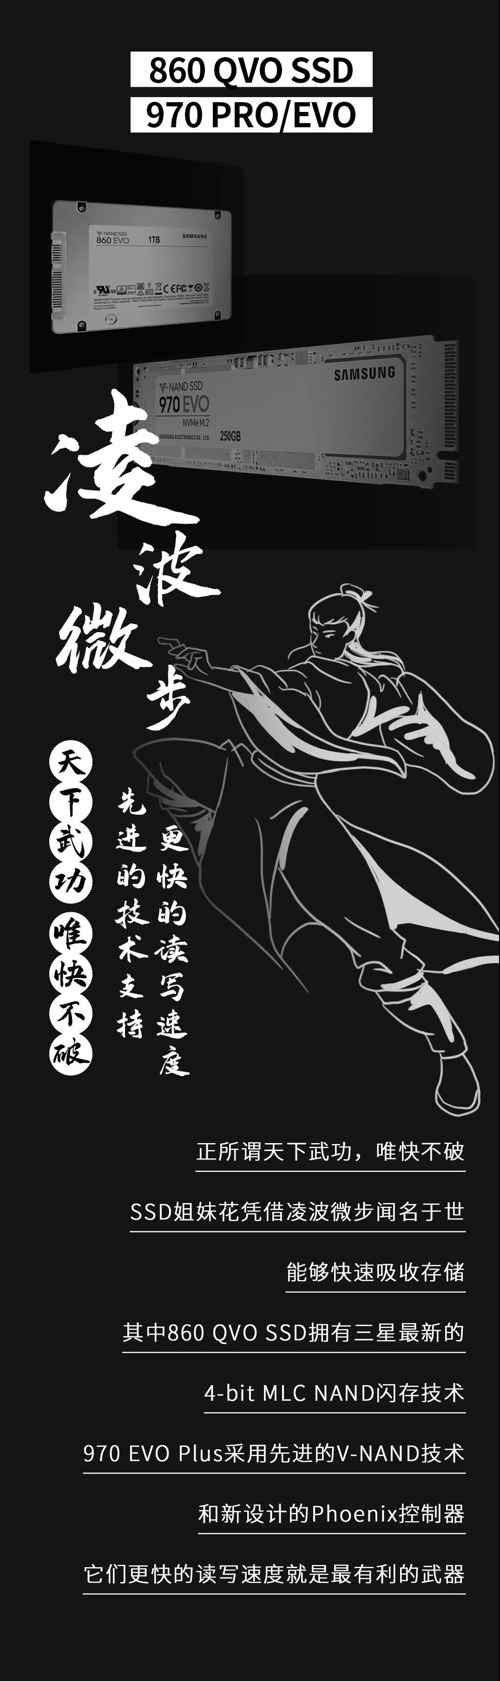 860 QVO SSD
970 PRO/EVO
V-NAND SSD
860 EVO
1TB
SAMSUNG
SAMSUNG
V-NAND SSD
970 EVO
NVMe M.2
SAMSUNG ELECTRONICS CO., LTD.
250GB
凌波微步
天下武功 唯快不破
先进的技术支持
更快的读写速度
正所谓天下武功，唯快不破
SSD姐妹花凭借凌波微步闻名于世
能够快速吸收存储
其中860 QVO SSD拥有三星最新的
4-bit MLC NAND闪存技术
970 EVO Plus采用先进的V-NAND技术
和新设计的Phoenix控制器
它们更快的读写速度就是最有利的武器